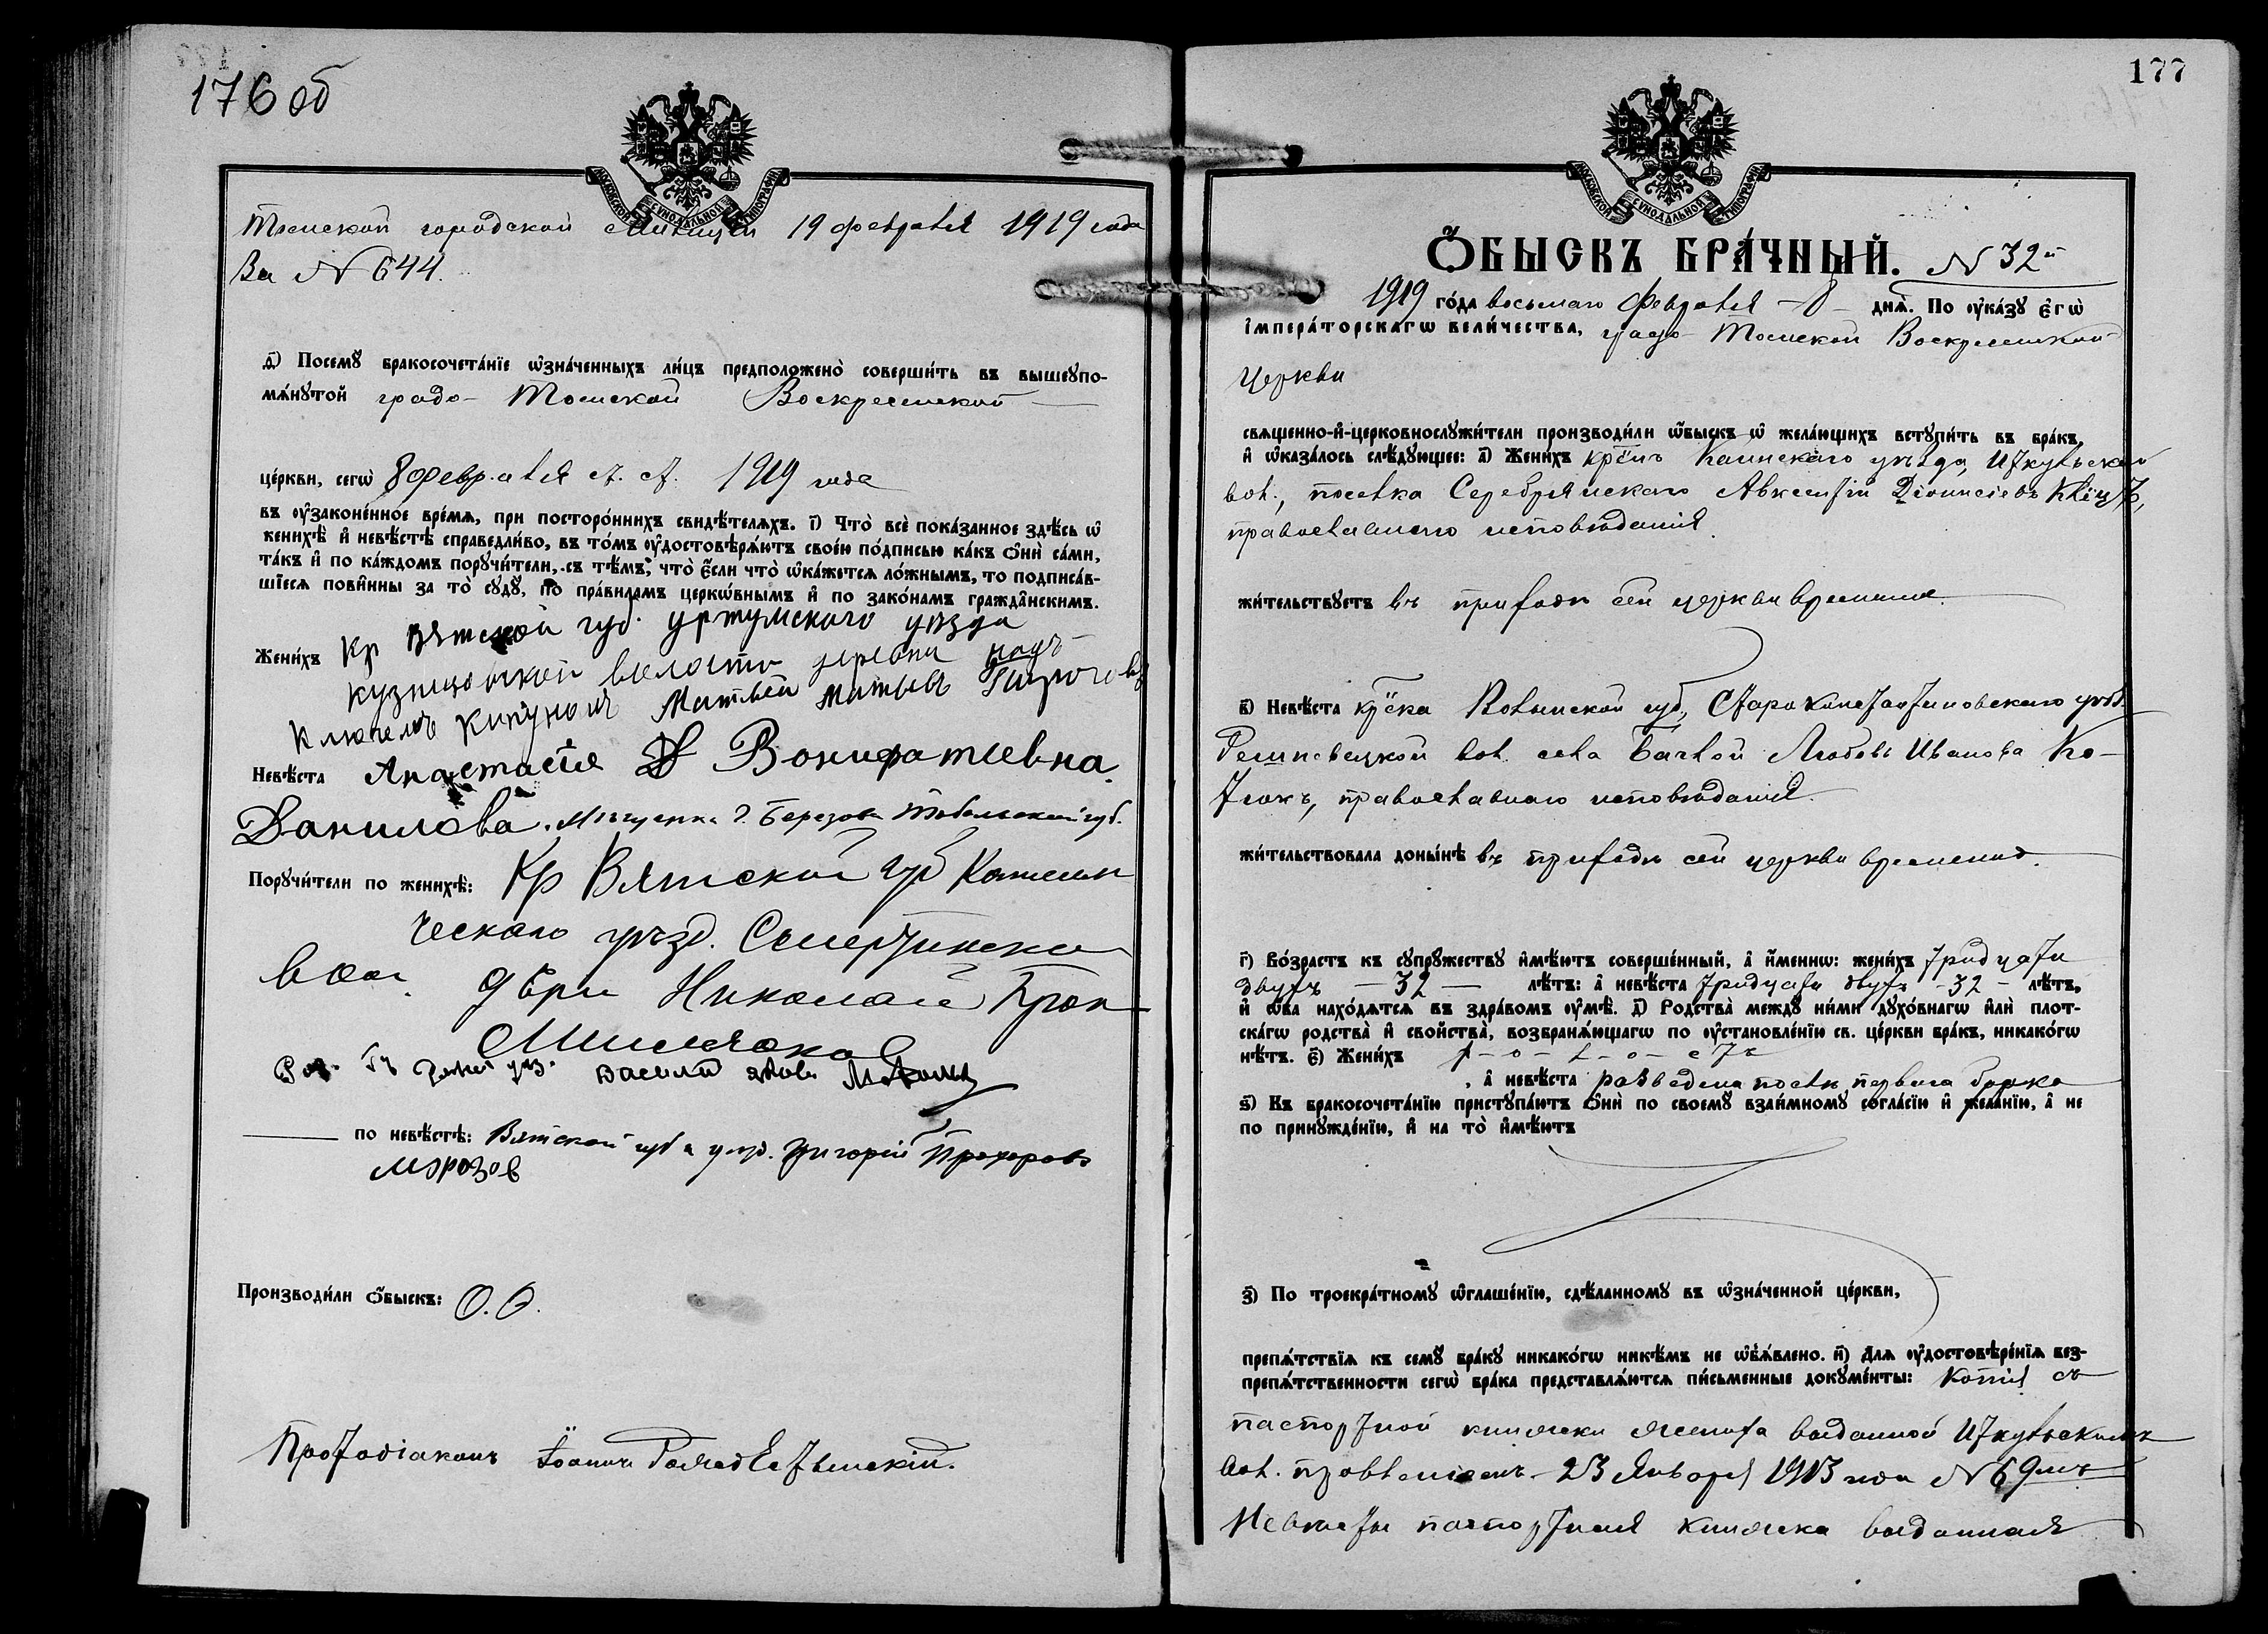 176 об
МОСКОВСКОЙ СѴНОДАЛЬНОЙ ТИПОГРАФІИ
Томской городской милиціей 19 февраля 1919 года
За № 644.
д҃) Посемꙋ бракосочета́нїе ѡ҆зна́ченныхъ ли́цъ предположено̀ соверши́ть въ вышеꙋпо-
мѧ́нꙋтой градо-Томской Воскресенской
це́ркви, сегѡ̀ 8 февраля с. с. 1919 года
въ ᲂу҆законе́нное вре́мѧ, при посторо́ннихъ свидѣ́телѧхъ. і҃) Что̀ всѐ пока́занное здѣ́сь ѡ҆
женихѣ̀ и҆ невѣ́стѣ справедли́во, въ то́мъ ᲂу҆достовѣрѧ́ютъ свое́ю по́дписью ка́къ ѻ҆нѝ са́ми,
та́къ и҆ по ка́ждомъ порꙋчи́тели, съ тѣ́мъ, что̀ є҆́сли что̀ ѡ҆ка́жетсѧ ло́жнымъ, то подписа́в-
шїесѧ пови́нны за то̀ сꙋдꙋ̀, по пра́виламъ церко́внымъ и҆ по зако́намъ гражда́нскимъ.
Жени́хъ Кр Вятской губ. уржумского уезда
кузнецовской волости деревни подъ
Ключемъ Матвей Матвъев
Невѣ́ста Анастасія Вонифатиевна
Данилова. Мѣщанка г. Березова Тобольской губ.
Порꙋчи́тели по женихѣ̀: Кр Вятской губ Котельни
ческаго уѣзд.
вол. дѣри Николай Прок
Василий
по невѣ́стѣ: Вятской губ и уезд. Григорій Прохоровъ
Морозов
Производи́ли ѻ҆́быскъ: О. О.
Протодіаконъ Іоаннъ
177
МОСКОВСКОЙ СѴНОДАЛЬНОЙ ТИПОГРАФІИ
Ѻ҆́БЫСКЪ БРА́ЧНЫЙ. № 32й
1919 го́да восьмаго Февраля – 8 – днѧ̀. По ᲂу҆ка́зꙋ є҆гѡ̀
і҆мпера́торскагѡ вели́чества, градо-Томской Воскресенской
церкви
свѧще́нно-и҆-церковнослꙋжи́тели производи́ли ѻ҆́быскъ ѡ҆ жела́ющихъ встꙋпи́ть въ бра́къ,
и҆ ѡ҆каза́лось слѣ́дꙋющее: а҃) Жени́хъ кр̃нъ Каинскаго уѣзда, Иткульской
вол., поселка Серебрянскаго Авксентій Діонисіевъ
православнаго исповѣданія.
жи́тельствꙋетъ въ приходѣ сей церкви временно.
в҃) Невѣ́ста кр̃ка Волынской губ., Староконстантиновскаго уѣзд.
вол. села Любовь Иванова Ко-
тюкъ, православнаго исповѣданія.
жи́тельствовала доны́нѣ въ приходѣ сей церкви временно.
г҃) Во́зрастъ къ сꙋпрꙋ́жествꙋ и҆мѣ́ютъ соверше́нный, а҆ и҆́менно: жени́хъ тридцати
двухъ – 32 – лѣ́тъ: а҆ невѣ́ста тридцати двухъ – 32 – лѣ́тъ,
и҆ ѻ҆́ба нахо́дѧтсѧ въ здра́вомъ ᲂу҆мѣ̀. д҃) Родства̀ междꙋ̀ ни́ми дꙋхо́внагѡ и҆лѝ плот-
ска́гѡ родства̀ и҆ сво́йства, возбранѧ́ющагѡ по ᲂу҆становле́нїю св. це́ркви бра́къ, никако́гѡ
нѣ́тъ. є҃) Жени́хъ х-о-л-о-стъ
, а҆ невѣ́ста разведена послѣ перваго брака
ѕ҃) Къ бракосочета́нїю пристꙋпа́ютъ ѻ҆нѝ по своемꙋ̀ взаи́мномꙋ согла́сїю и҆ жела́нїю, а҆ не
по принꙋжде́нїю, и҆ на то̀ и҆мѣ́ютъ
з҃) По троекра́тномꙋ ѡ҆глаше́нїю, сдѣ́ланномꙋ въ ѡ҆зна́ченной це́ркви,
препѧ́тствїѧ къ семꙋ̀ бра́кꙋ никако́гѡ никѣ́мъ не ѡ҆б̾ѧ́влено. и҃) Длѧ ᲂу҆достовѣре́нїѧ без-
препѧ́тственности сегѡ̀ бра́ка представлѧ́ютсѧ пи́сьменные докꙋме́нты: Копія съ
паспортной книжки жениха выданной Иткульскимъ
вол. правленіемъ 23 Января 1913 года № 69мъ
Невѣсты паспортная книжка выданная